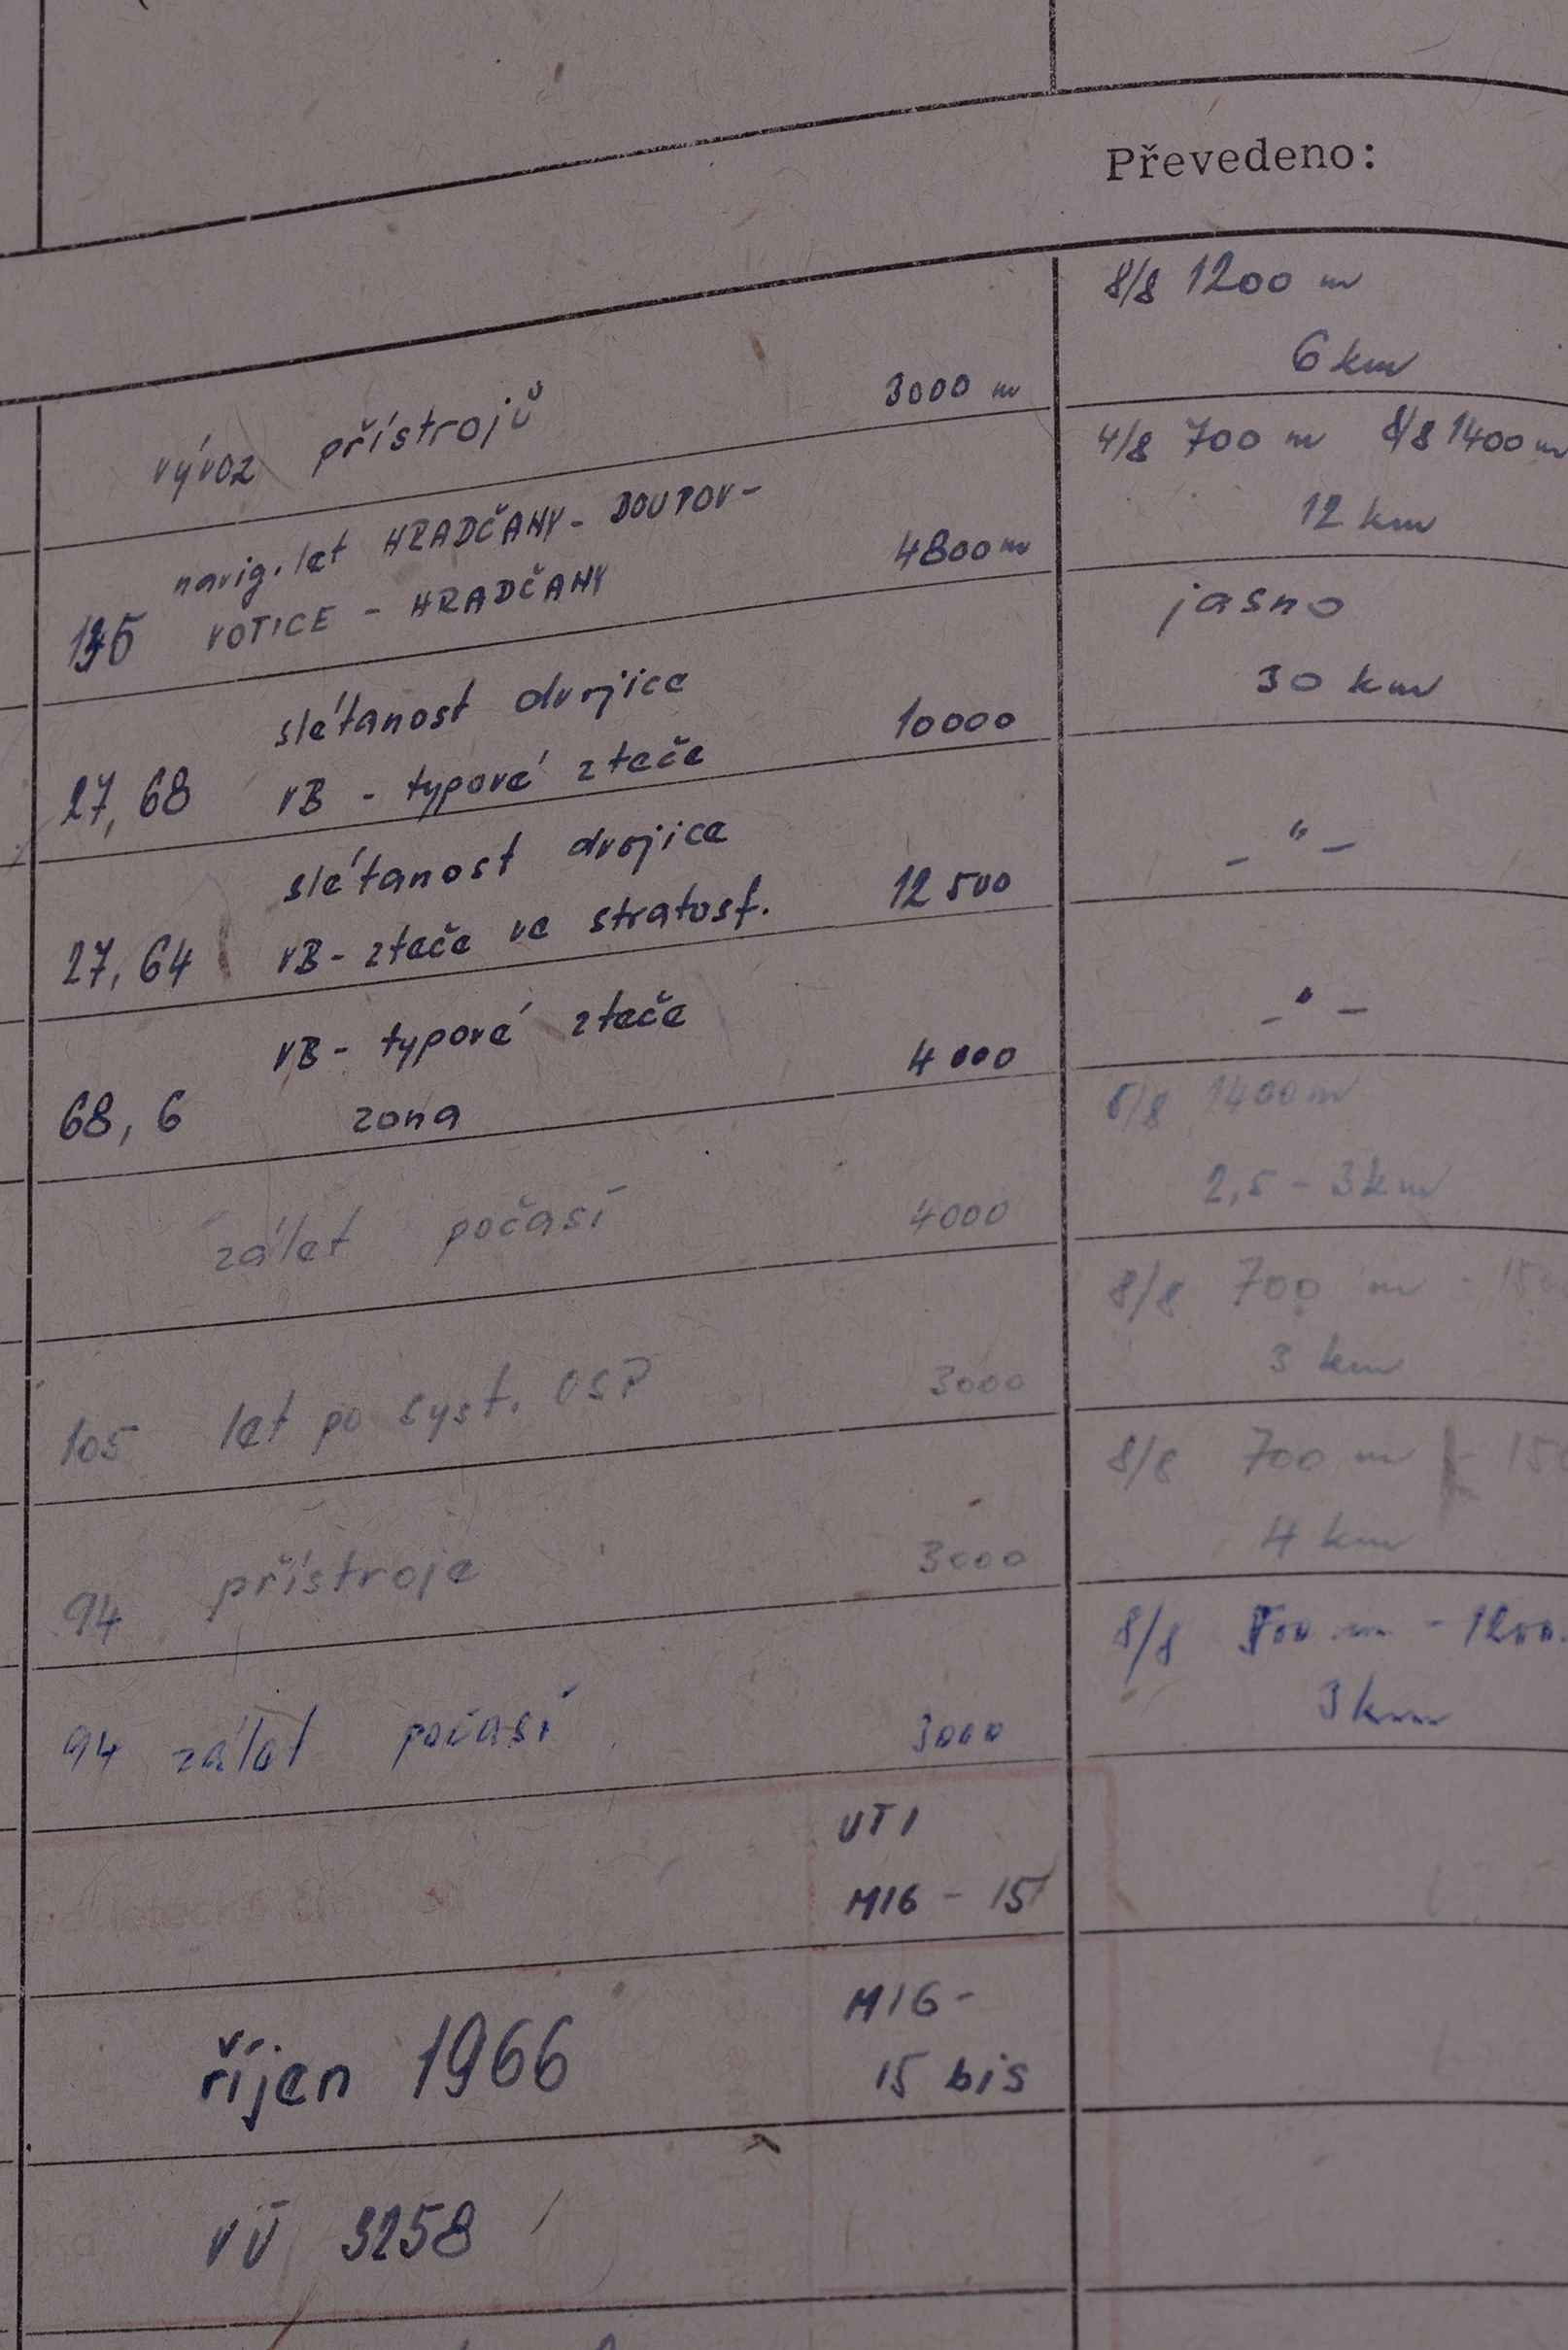 Převedeno:
8/8 1200 m
6 km
vývoz přístrojů 3000 m
4/8 700 m 8/8 1400 m
12 km
navig. let HRADČANY - DOUPOV -
VOTICE - HRADČANY 4800 m
jasno
30 km
27, 68 slétanost dvojice
VB - typové zteče 10000
- " -
27, 64 slétanost dvojice
VB - zteče ve stratosf. 12 500
- " -
68, 6 VB - typové zteče
zona 4 000
8/8 1400 m
2,5 - 3 km
zálet počasí 4000
8/8 700 m
3 km
105 let po syst. OSP 3000
8/8 700 m
4 km
94 přístroje 3000
8/8 - 1200
3 km
94 zálet počasí 3000
UTI
MIG - 15
říjen 1966 MIG -
15 bis
VÚ 3258